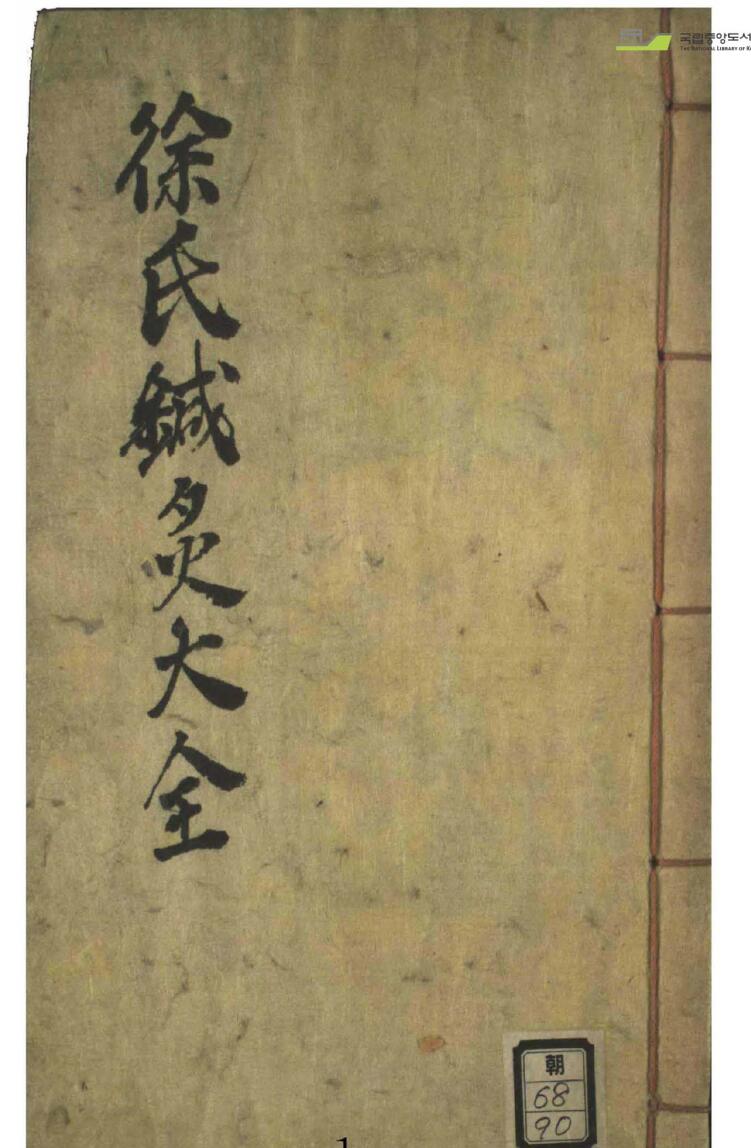 국립중앙도서
THE NATIONAL LIBRARY OF K
徐氏鍼灸大全
朝
68
90
1